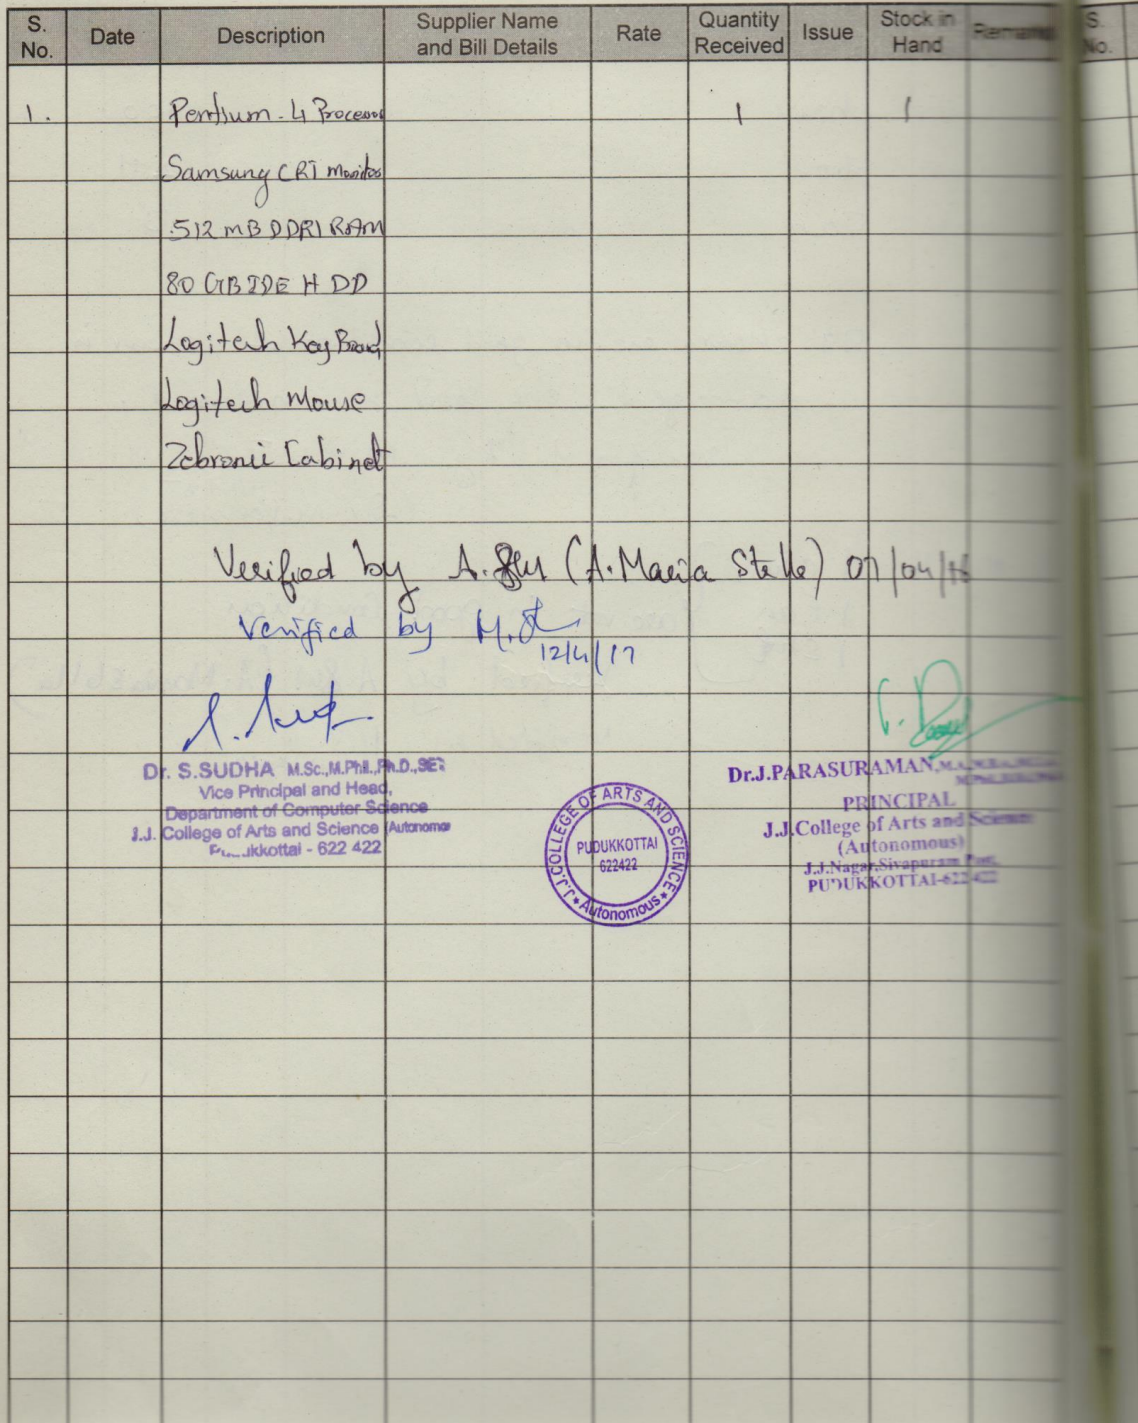 S. No. Date Description Supplier Name and Bill Details Rate Quantity Received Issue Stock in Hand Remarks S. No.
1. Pentium-4 Processor 1 1
Samsung CRT Monitor
512 MB DDR1 RAM
80 GB IDE HDD
Logitech Key Board
Logitech Mouse
Zebronic Cabinet
Verified by A. (A. Maria Stella) 07/04/16
Verified by M.
12/4/17
Dr. S.SUDHA M.Sc.,M.Phil.,Ph.D.,SET
Vice Principal and Head,
Department of Computer Science
J.J. College of Arts and Science (Autonomous
Pudukkottai - 622 422
J.J. COLLEGE OF ARTS AND SCIENCE
PUDUKKOTTAI
622422
Autonomous
Dr.J.PARASURAMAN,
PRINCIPAL
J.J.College of Arts and Science
(Autonomous)
J.J.Nagar,Sivapuram Post,
PUDUKKOTTAI-622 422